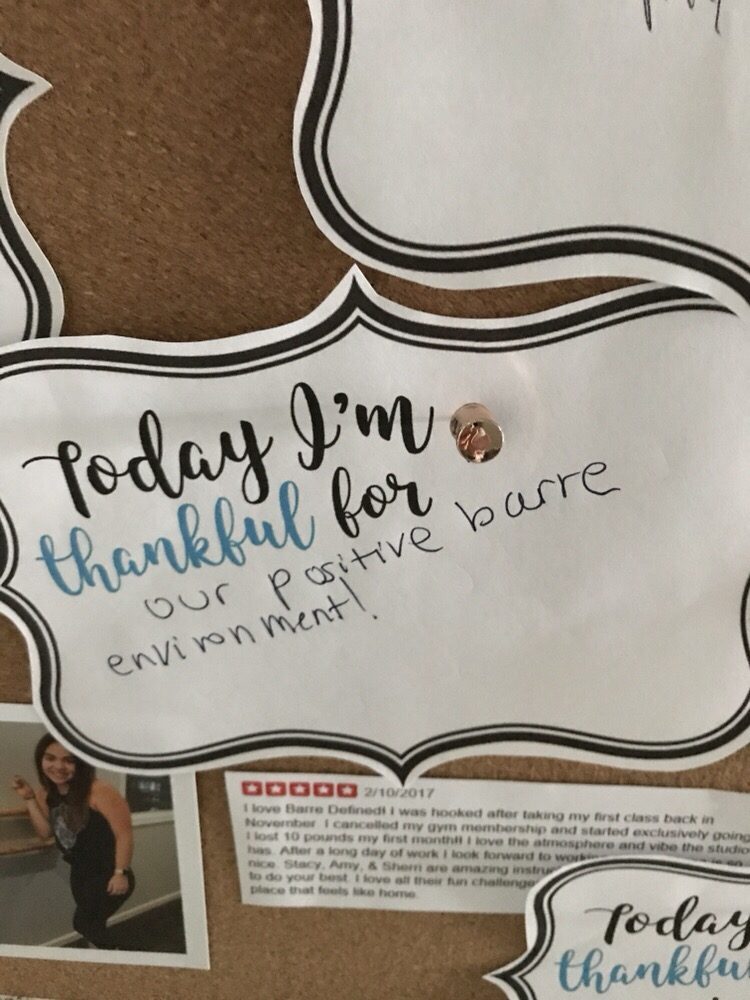 Today I'm
thankful for
our positive barre
environment!
2/10/2017
I love Barre Defined! I was hooked after taking my first class back in
November. I cancelled my gym membership and started exclusively going
I lost 10 pounds my first month!! I love the atmosphere and vibe the studio
has. After a long day of work I look forward to
nice. Stacy, Amy, & Sherri are amazing
to do your best. I love all their fun
place that feels like home.
Today